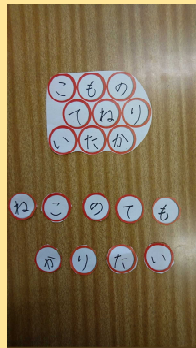 こもの
てねり
いたか
ねこのても
かりたい